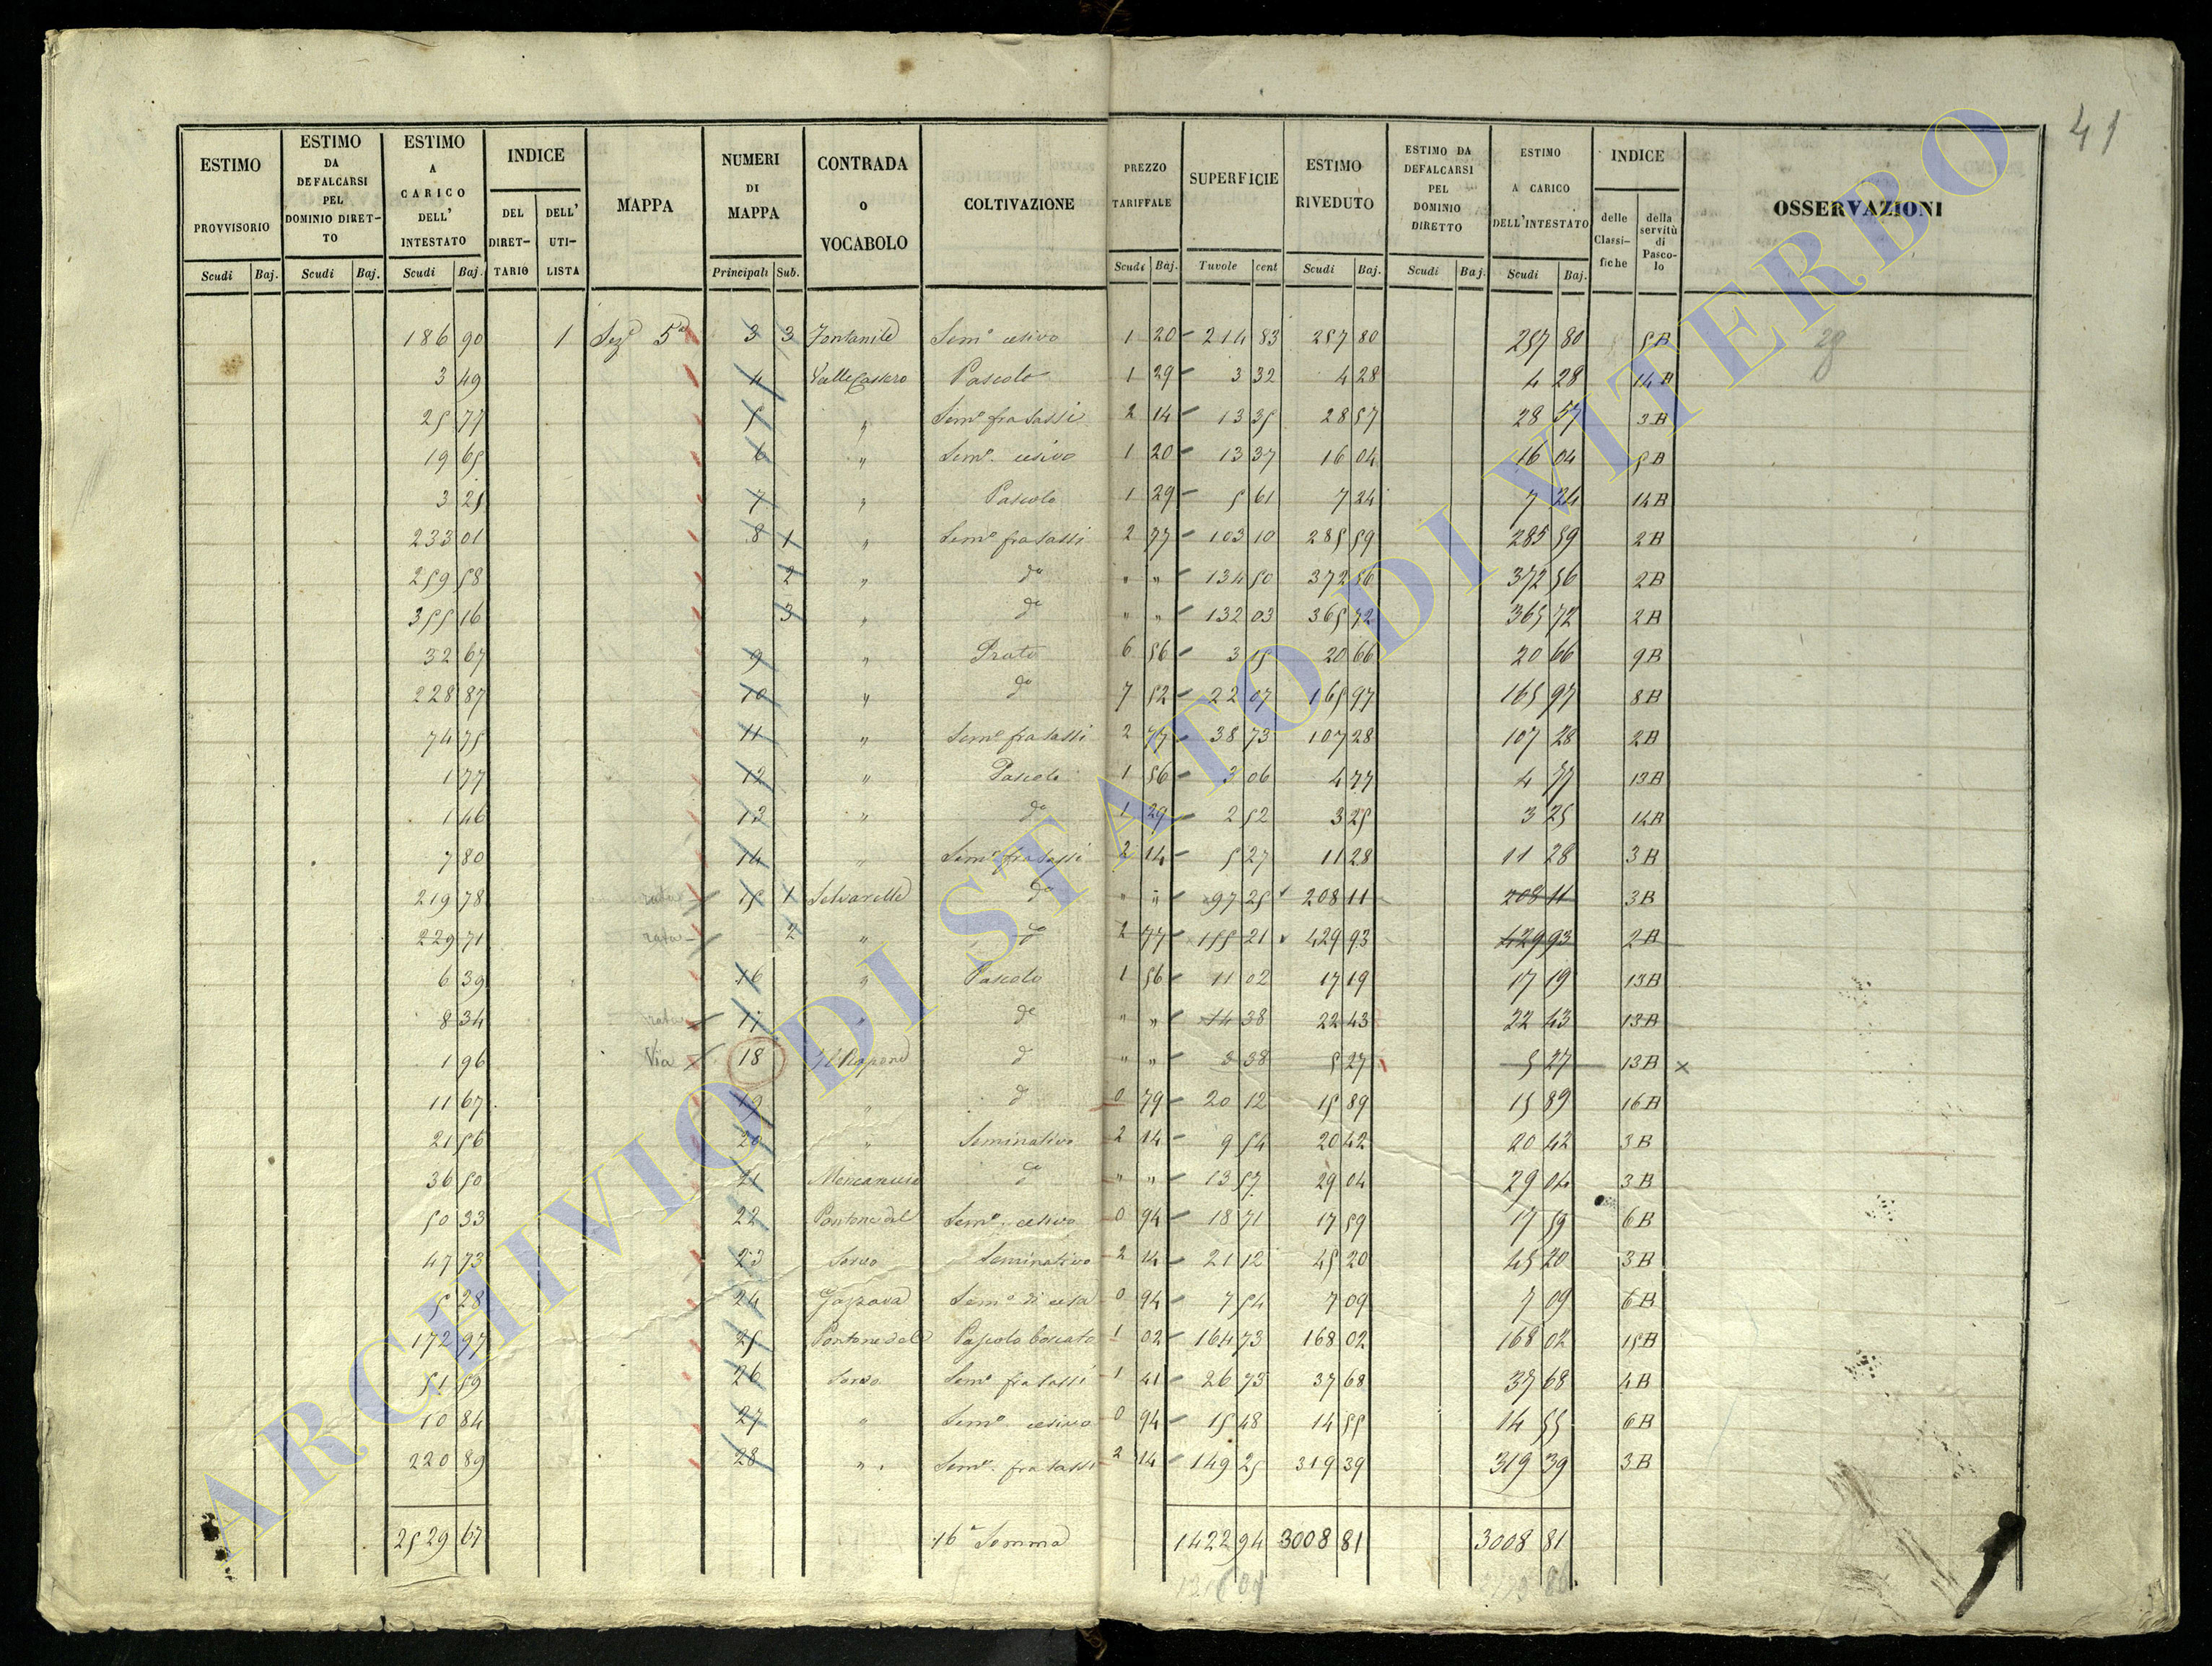 41
ESTIMO PROVVISORIO Scudi Baj.
ESTIMO DA DEFALCARSI PEL DOMINIO DIRET-TO Scudi Baj.
ESTIMO A CARICO DELL' INTESTATO Scudi Baj.
INDICE DEL DIRET-TARIO DELL' UTI-LISTA
MAPPA
NUMERI DI MAPPA Principali Sub.
CONTRADA o VOCABOLO
COLTIVAZIONE
PREZZO TARIFFALE Scudi Baj.
SUPERFICIE Tuvole cent
ESTIMO RIVEDUTO Scudi Baj.
ESTIMO DA DEFALCARSI PEL DOMINIO DIRETTO Scudi Baj.
ESTIMO A CARICO DELL'INTESTATO Scudi Baj.
INDICE delle Classi-fiche della servitù di Pasco-lo
OSSERVAZIONI
186 90 1 Sez.e 5a 3 3 Fontanile Semo cesivo 1 20 214 83 257 80 257 80 5B
3 49 4 Pascolo 1 29 3 32 4 28 4 28 14B
25 77 5 " Semo fra sassi 2 14 13 35 28 57 28 57 3B
19 65 6 " Semo cesivo 1 20 13 37 16 04 16 04 5B
3 25 7 " Pascolo 1 29 5 61 7 24 7 24 14B
233 01 8 1 " Semo fra sassi 2 77 103 10 285 59 285 59 2B
259 58 2 " do " " 134 50 372 56 372 56 2B
355 16 3 " do " " 132 03 365 72 365 72 2B
32 67 9 " Prato 6 56 3 15 20 66 20 66 9B
228 87 10 " do 7 52 22 07 165 97 165 97 8B
74 75 11 " Semo fra sassi 2 77 38 73 107 28 107 28 2B
1 77 12 " Pascolo 1 56 3 06 4 77 4 77 13B
1 46 13 " do 1 29 2 52 3 25 3 25 14B
7 80 14 " Semo fra sassi 2 14 5 27 11 28 11 28 3B
219 78 rata 15 1 Selvarelle do " " 97 25 208 11 208 11 3B
229 71 rata 2 " do 2 77 155 21 429 93 429 93 2B
6 39 16 " Pascolo 1 56 11 02 17 19 17 19 13B
8 34 rata 17 " do " " 14 38 22 43 22 43 13B
1 96 Via 18 do " " 3 38 5 27 5 27 13B x
11 67 19 " do 0 79 20 12 15 89 15 89 16B
21 56 20 " Seminativo 2 14 9 54 20 42 20 42 3B
36 50 21 do " " 13 57 29 04 29 04 3B
50 33 22 Pontone del Semo cesivo 0 94 18 71 17 59 17 59 6B
47 73 23 Sorvo Seminativo 2 14 21 12 45 20 45 20 3B
5 28 24 Semo di cesa 0 94 7 54 7 09 7 09 6B
172 97 25 Pontone del Pascolo boscato 1 02 164 73 168 02 168 02 15B
51 59 26 Sorvo Semo fra sassi 1 41 26 73 37 68 37 68 4B
10 84 27 " Semo cesivo 0 94 15 48 14 55 14 55 6B
220 89 28 " Semo fra sassi 2 14 149 25 319 39 319 39 3B
2529 67 16a Somma 1422 94 3008 81 3008 81
ARCHIVIO DI STATO DI VITERBO